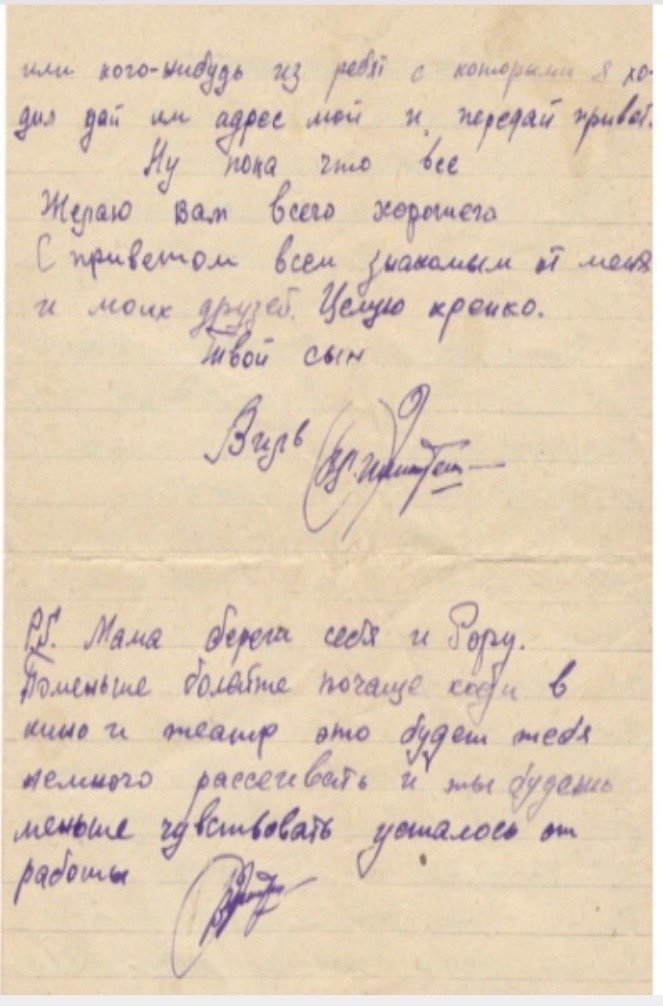 или кого-нибудь из ребят с которыми я хо-
дил дай им адрес мой и передай привет.
Ну пока что все
Желаю вам всего хорошего
С приветом всем знакомым от меня
и моих друзей. Целую крепко.
Твой сын
Виль
Р.S. Мама береги себя и Бору.
Поменьше болейте почаще ходи в
кино и театр это будет тебя
немного рассеивать и ты будешь
меньше чувствовать усталось от
работы